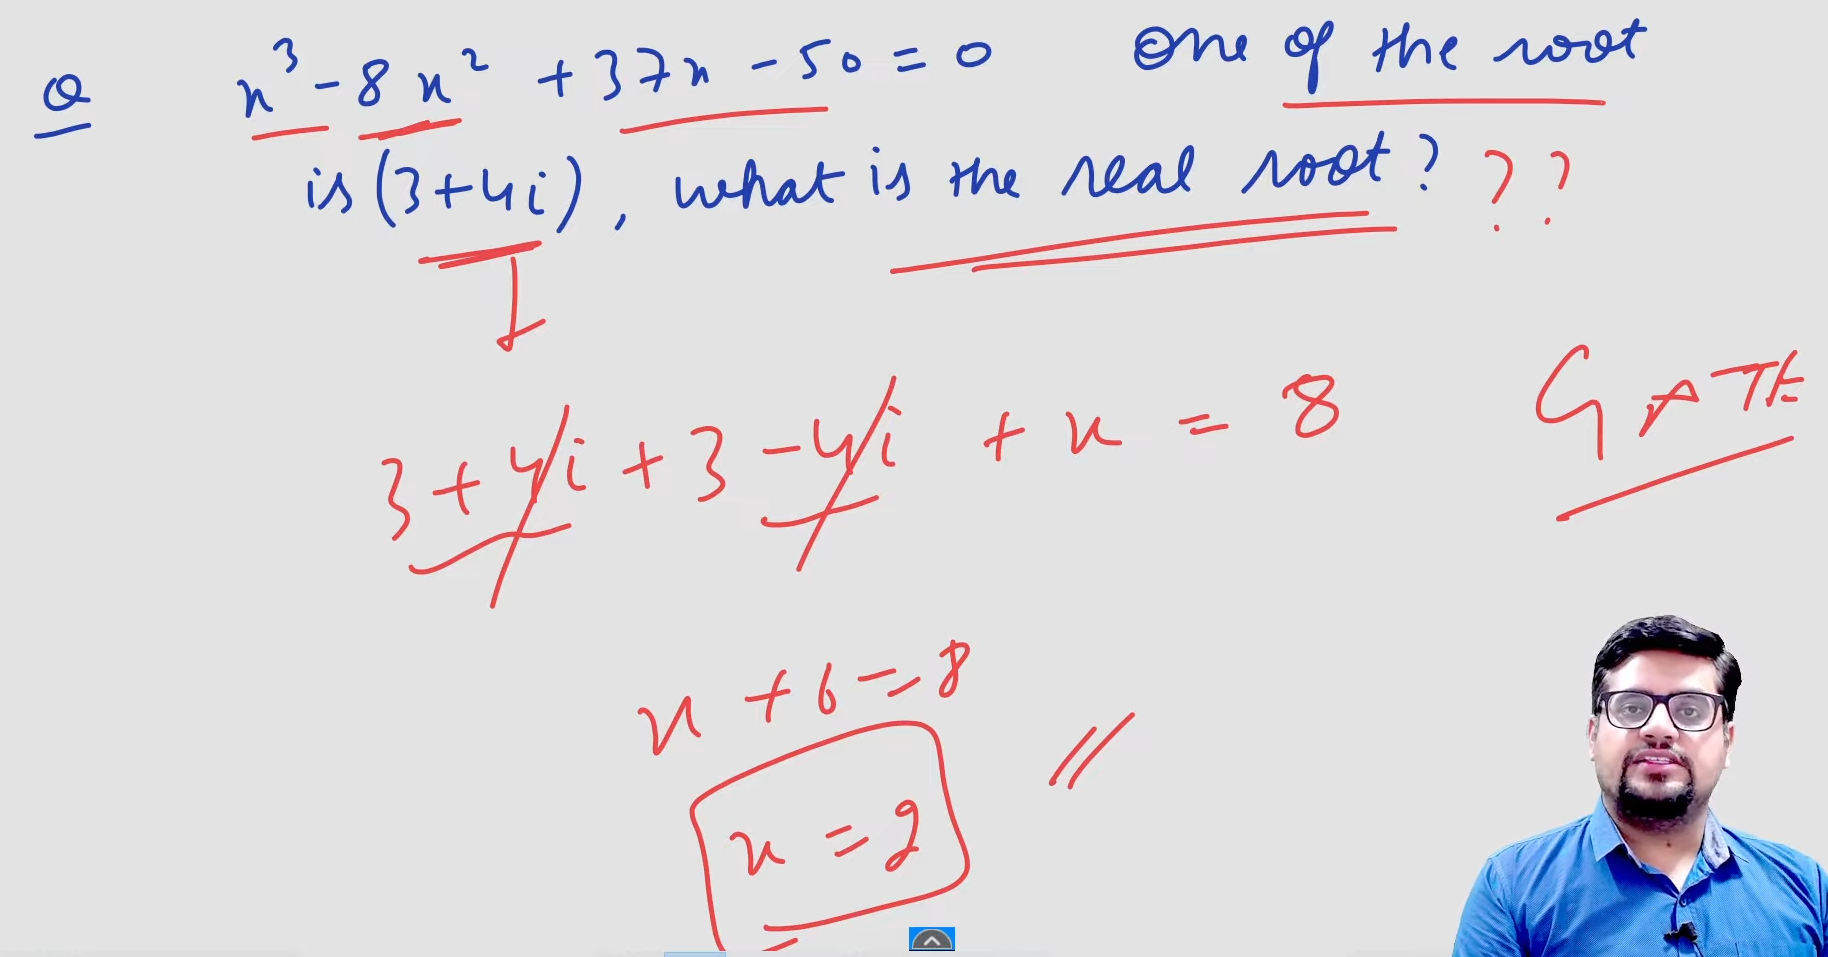 Q x³ - 8x² + 37x - 50 = 0 One of the root
is (3+4i), what is the real root? ??
3+4i + 3 -4i + x = 8
GATE
x + 6 = 8
x = 2